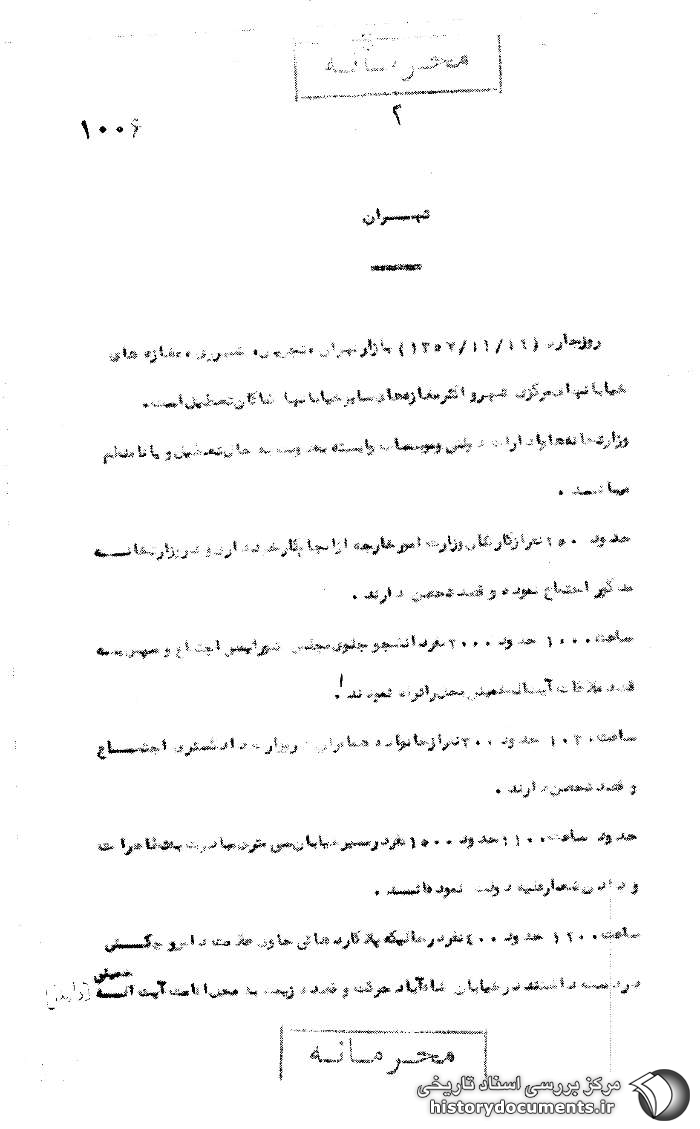 محرمانه
۲
۱۰۰۶
تهران
روزجاری (۱۳۵۷/۱۱/۱۶) بازارتهران ، تجریش، ، مغازه های
خیابانهای مرکزی شهرو اکثرمغازه های سایرخیابانها کماکان تعطیل است.
وزارتخانه ها وادارات دولتی وموسسات وابسته بدولت به حال تعطیل و یا نا منظم
میباشند .
حدود ۱۵۰ نفرازکارکنان وزارت امورخارجه ازانجام کارخودداری و دروزارتخانه
مذکور اجتماع نموده و قصد تحصن دارند .
ساعت ۱۰۰۰ حدود ۲۰۰۰ نفردانشجو جلوی مجلس شورایملی اجتماع و سپس به
قصد ملاقات آیت اله خمینی محل راترک نمودند .
ساعت ۱۰۳۰ حدود ۲۰۰ نفرازخانواده دروزارت دادگستری اجتماع
و قصد تحصن دارند .
حدود ساعت ۱۱۰۰ حدود ۱۵۰۰ نفردرمسیرخیابان سی متری مبادرت به تظاهرات
و دادن شعارعلیه دولت نموده اند .
ساعت ۱۲۰۰ حدود ۴۰۰ نفردرحالیکه پلاکاردهائی حاوی علامت داس و چکش
دردست داشتند درخیابان شاه آباد حرکت و قصد عزیمت به محل اقامت آیت اله خمینی
محرمانه
مرکز بررسی اسناد تاریخی
historydocuments.ir